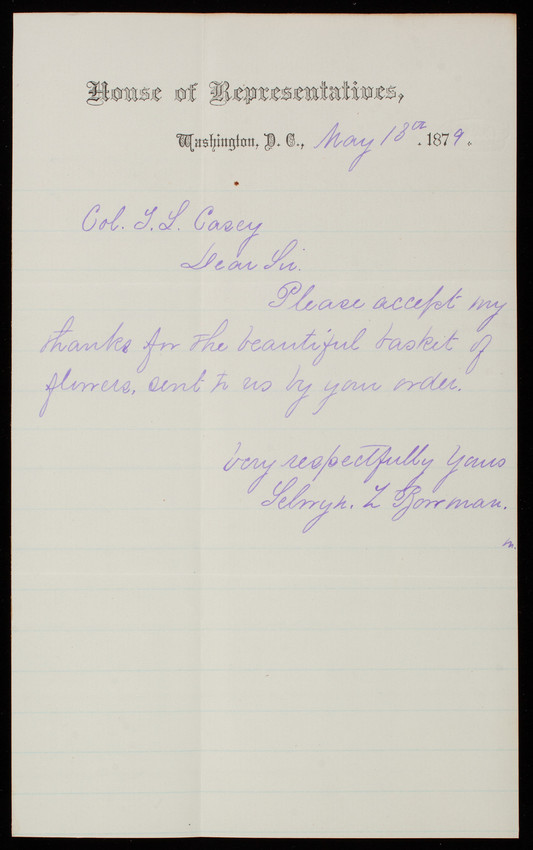 House of Representatives,
Washington, D. C., May 18th. 1879.
Col. T. L. Casey
Dear Sir.
Please accept my
thanks for the beautiful basket of
flowers, sent to us by your order.
Very respectfully Yours
Selwyn. Z Bowman.
m.